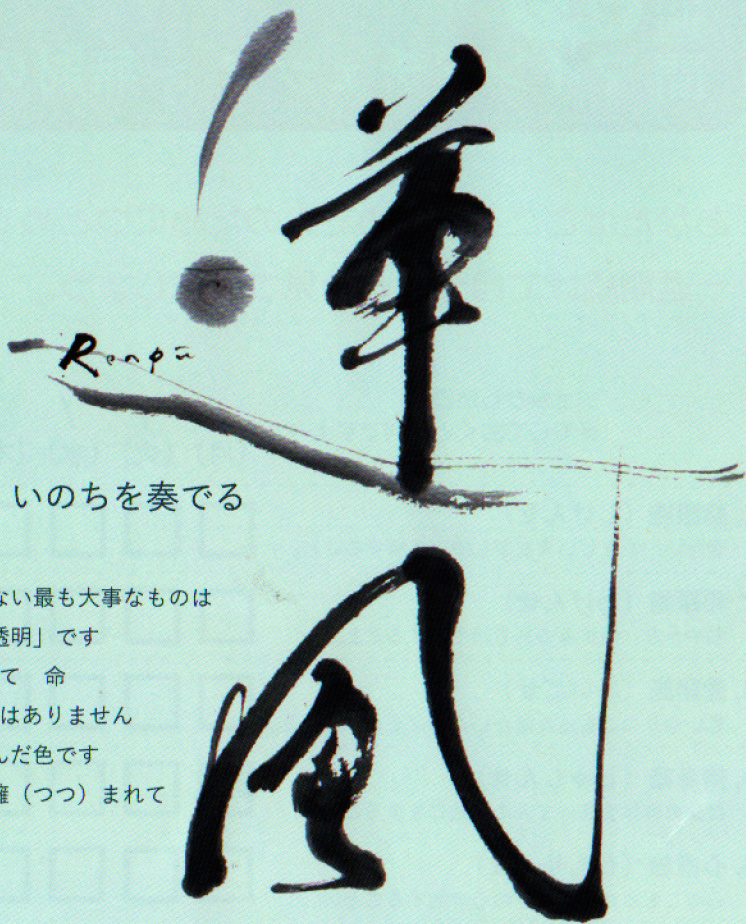 蓮風
Renpū
いのちを奏でる
ない最も大事なものは
透明」です
て 命
はありません
んだ色です
擁(つつ)まれて